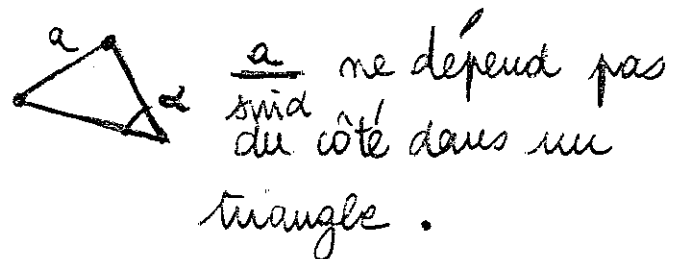 a
α
a/sin α ne dépend pas
du côté dans un
triangle.